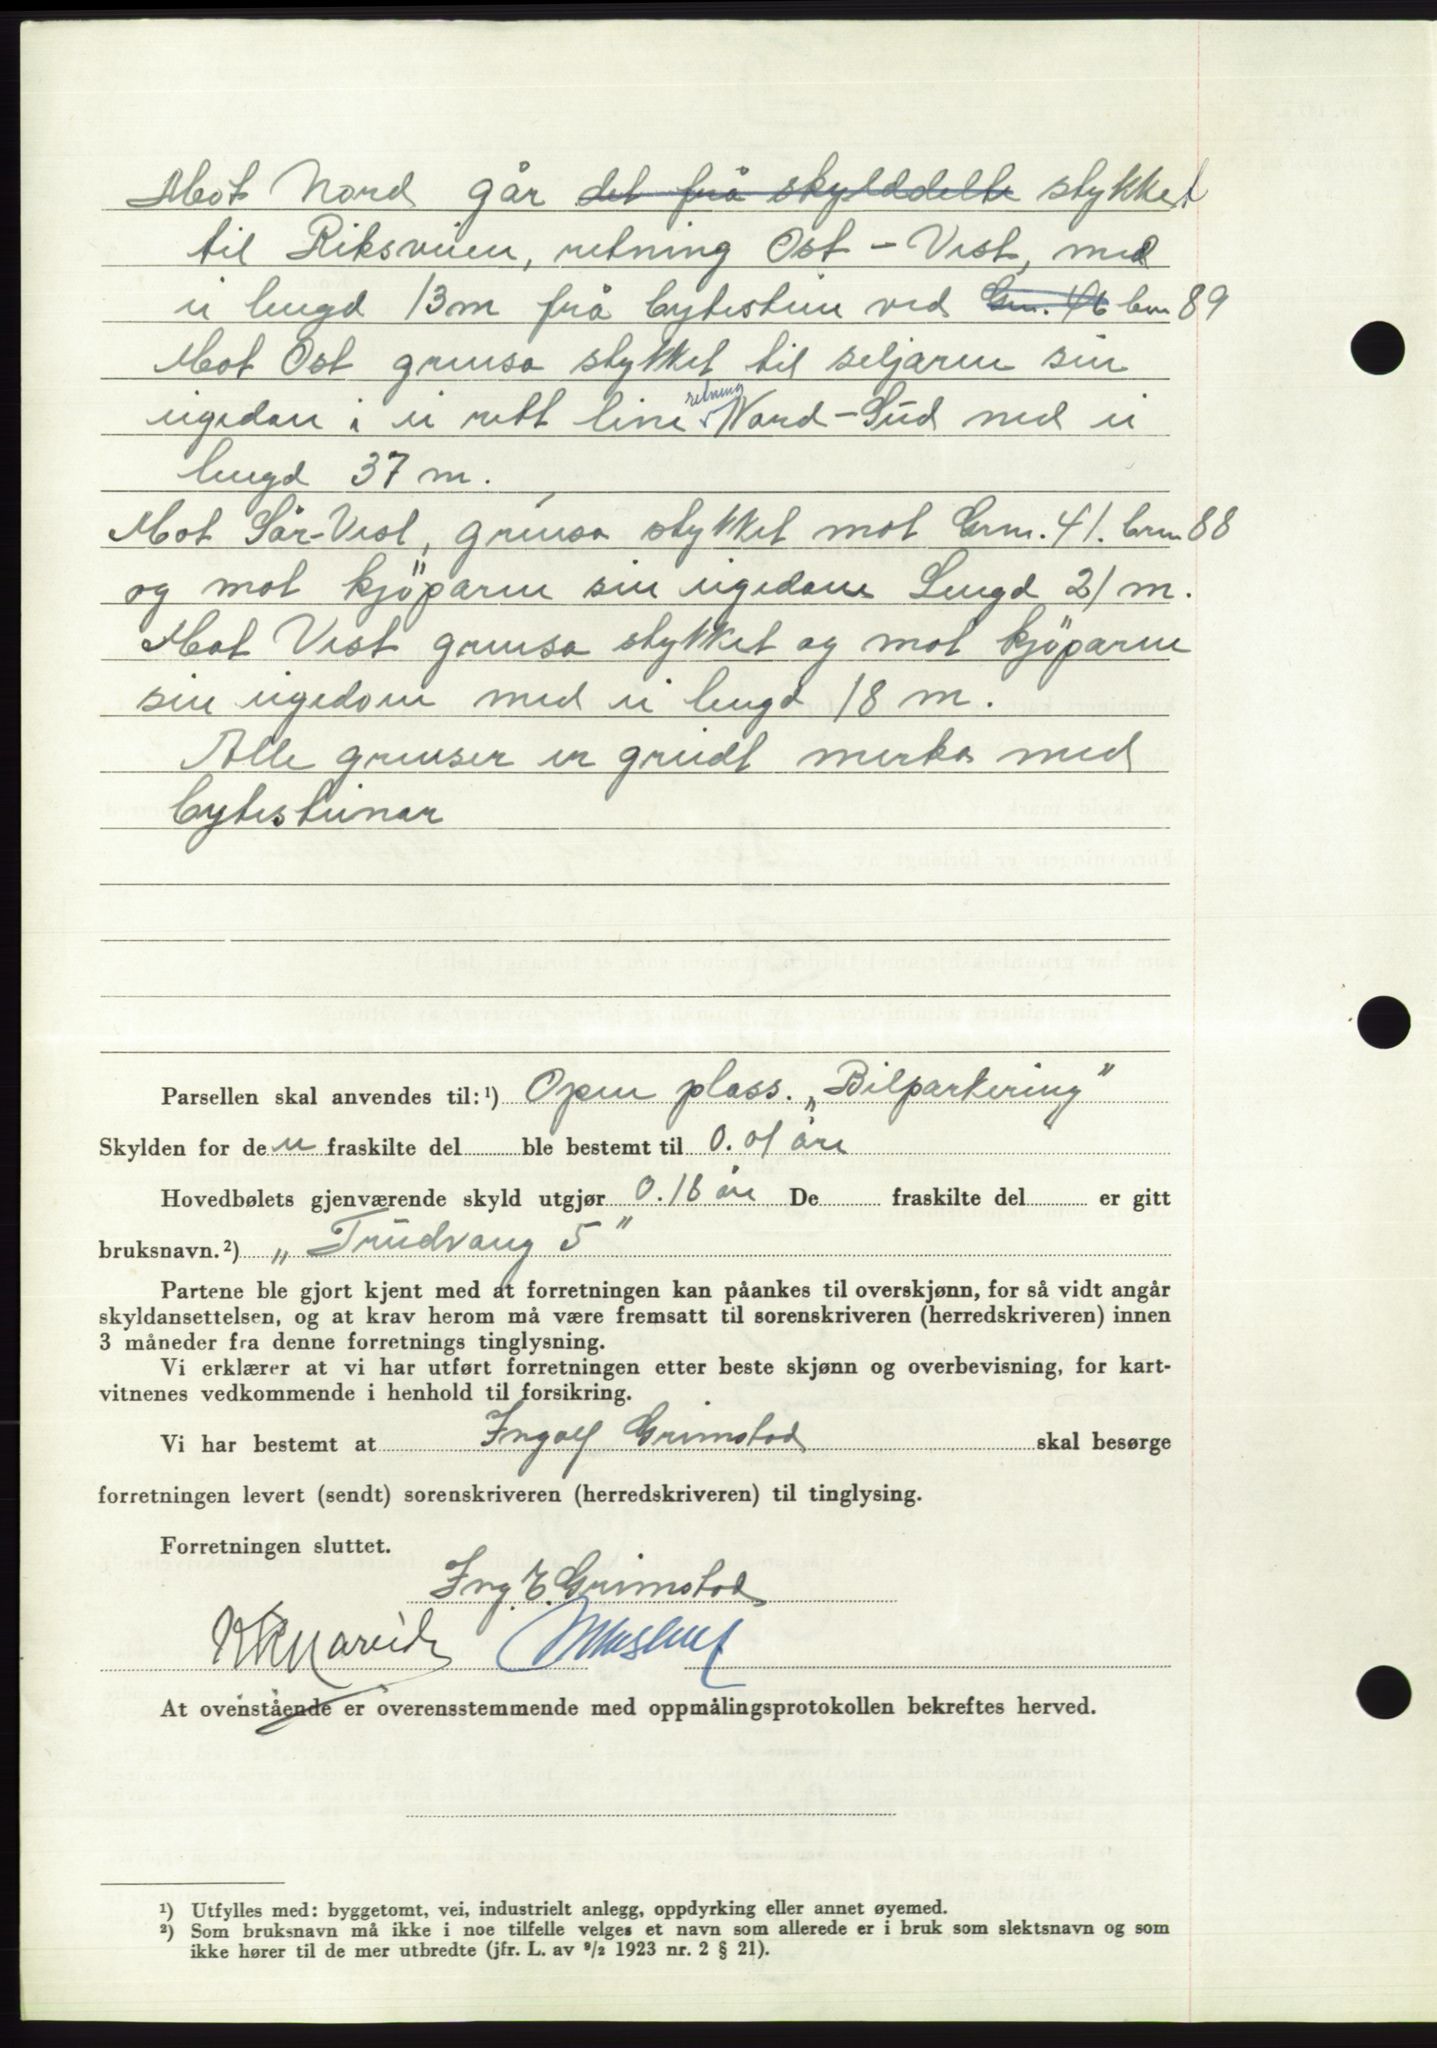 Mot Nord går det frå skylddelte stykket
til Riksveien, retning Ost - Vest, med
ei lengd 13 m frå bytestein ved Gnr. 41 bnr 89
Mot Ost grensa stykket til seljaren sin
eigedom i ei rett line retning Nord - Süd med ei
lengd 37 m.
Mot Sør-Vest, grensa stykket mot Gnr. 41. bnr 88
og mot kjöparen sin eigedom Lengd 21 m.
Mot Vest grensa stykket og mot kjöparen
sin eigedom med ei lengd 18 m.
Alle grenser er greidt merka med
bytesteinar
Parsellen skal anvendes til: ¹) Open plass. „Bilparkering"
Skylden for den fraskilte del ble bestemt til 0.01 øre
Hovedbølets gjenværende skyld utgjør 0.18 øre De fraskilte del er gitt
bruksnavn. ²) „Trudvang 5"
Partene ble gjort kjent med at forretningen kan påankes til overskjønn, for så vidt angår
skyldansettelsen, og at krav herom må være fremsatt til sorenskriveren (herredskriveren) innen
3 måneder fra denne forretnings tinglysning.
Vi erklærer at vi har utført forretningen etter beste skjønn og overbevisning, for kart-
vitnenes vedkommende i henhold til forsikring.
Vi har bestemt at Ingolf Grimstad skal besørge
forretningen levert (sendt) sorenskriveren (herredskriveren) til tinglysing.
Forretningen sluttet.
Ing. E. Grimstad
At ovenstående er overensstemmende med oppmålingsprotokollen bekreftes herved.
¹) Utfylles med: byggetomt, vei, industrielt anlegg, oppdyrking eller annet øyemed.
²) Som bruksnavn må ikke i noe tilfelle velges et navn som allerede er i bruk som slektsnavn og som
ikke hører til de mer utbredte (jfr. L. av ⁹/₂ 1923 nr. 2 § 21).